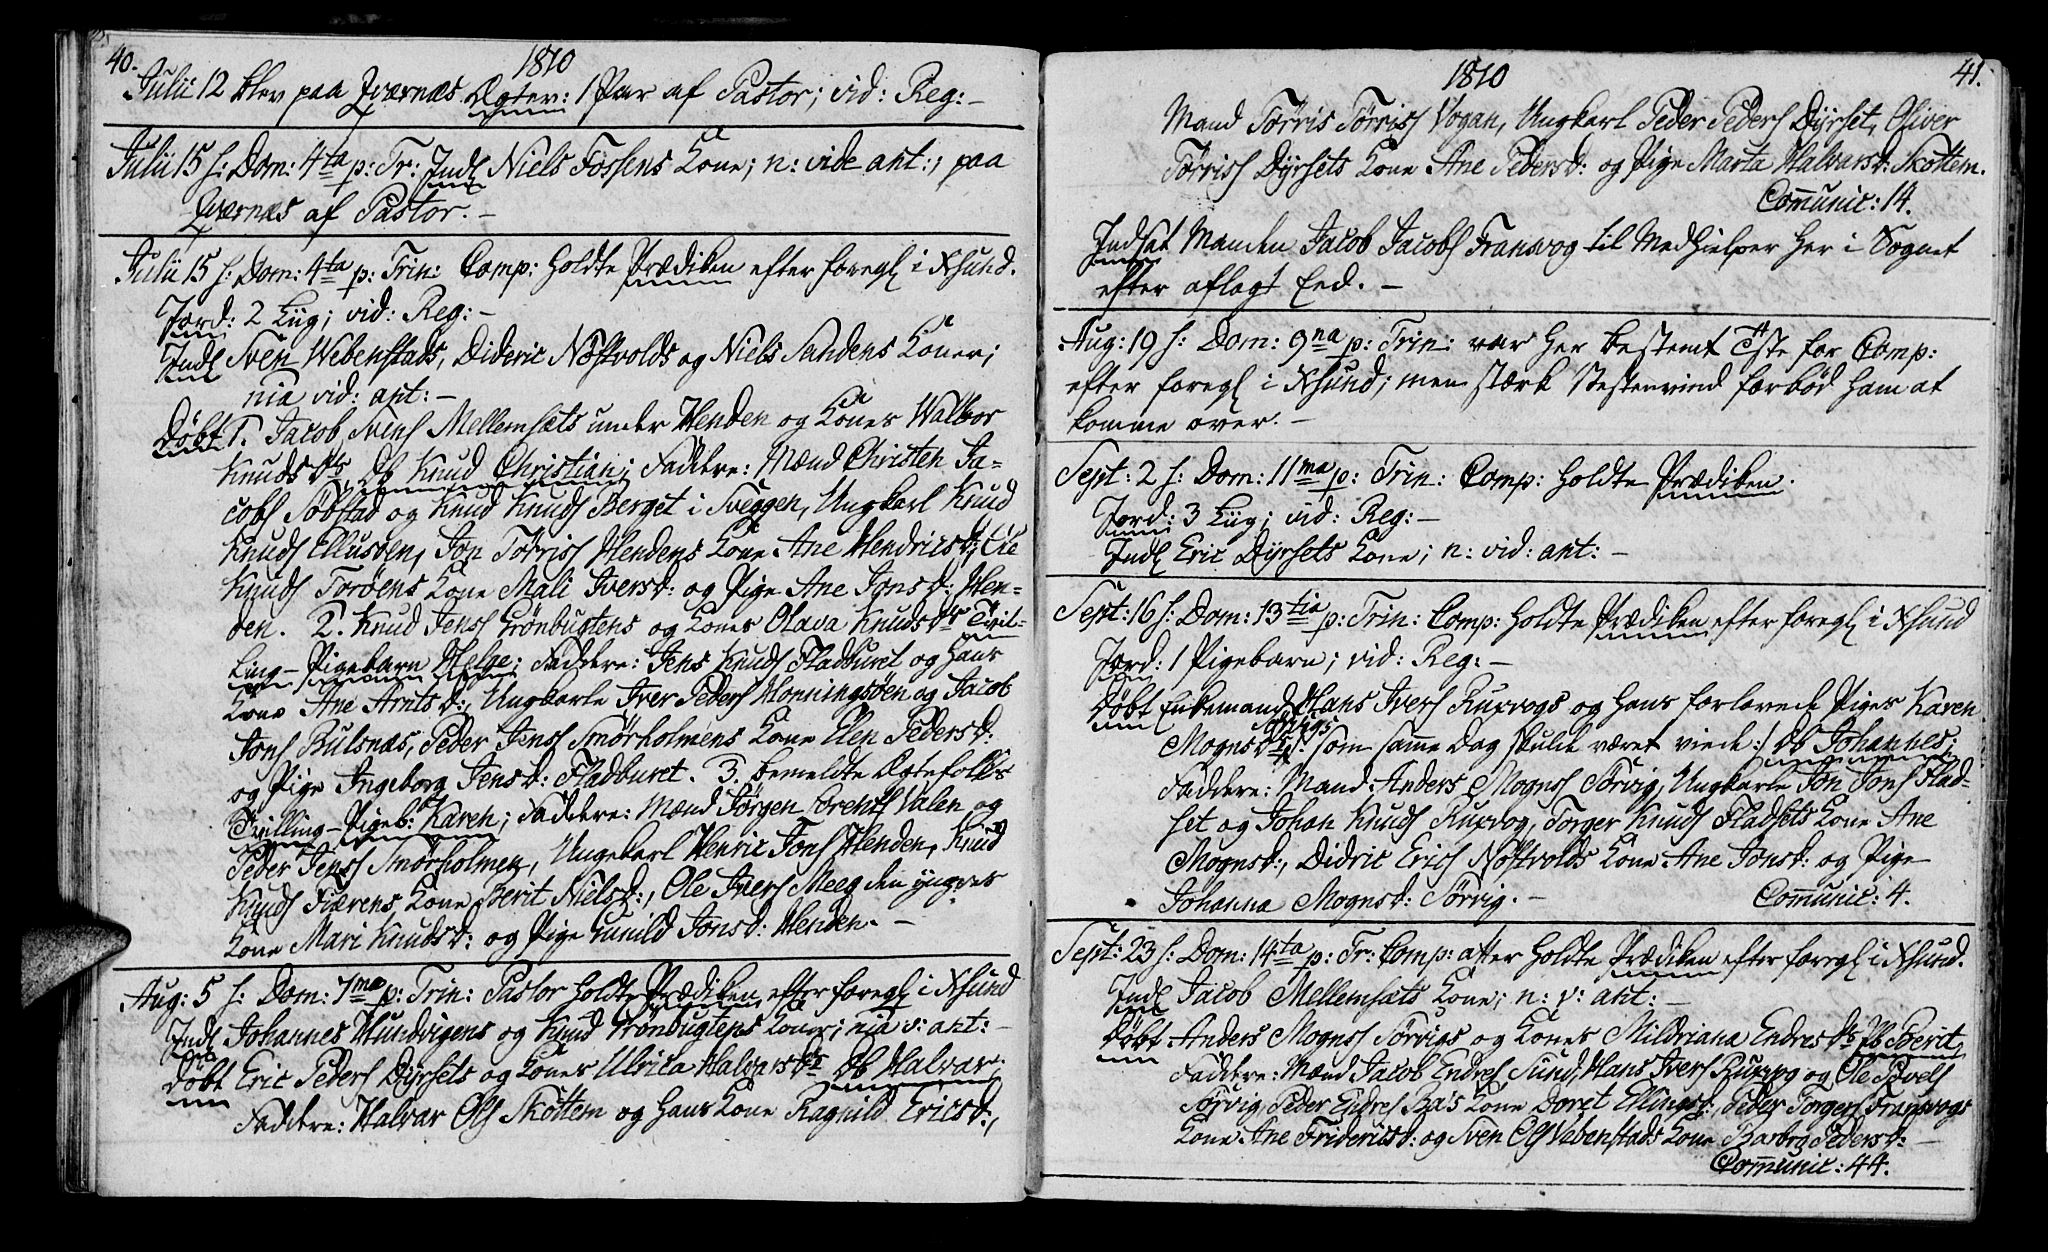 40.
1810
Julii 12 blev paa Qvernæs Ægtev: 1 Par af Pastor; vid: Reg: –
Julii 15 f: Dom: 4ta p: Tr: Indl Niels Fossens Kone; n: vide ant:, paa
Qvernæs af Pastor. –
Julii 15 f: Dom: 4ta p: Trin: Comp: holdte Prædiken efter foregl i Xsund.
Jord: 2 Liig; vid: Reg: –
Indl Sven Webenstads, Dideric Nöstvolds og Niels Sandens Koner;
nia vid: ant: –
Döbt 1. Jacob Svens Mellemsæts under Henden og Kones Walbor
Knudsdts Db Knud Christian; Faddere: Mænd Christen Ja=
cobs Söbstad og Knud Knuds Berget i Sveggen, Ungkarl Knud
Knuds Ellussøen, Jon Törriss Hendens Kone Ane Hendricsd:, Ole
Knuds Toröens Kone Mali Iversd: og Pige Ane Jonsd: Hen=
den. 2. Knud Jenss Grönbugtens og Kones Olava Knudsdts Tvil=
ling-Pigebarn Helge; Faddere: Jens Knuds Fladburet og hans
Kone Ane Arntsd:, Ungkarle Iver Peders Honningsöen og Jacob
Jons Bulsnæs, Peder Jenss Smörholmens Kone Elen Pedersd:
og Pige Ingeborg Jensd: Fladburet. 3. bemeldte Ægtefolks
Tvilling-Pigeb: Karen; Faddere: Mænd Jörgen Lorents Valen og
Peder Jenss Smörholmen, Ungekarl Henric Jons Henden, Knud
Knuds Fiærens Kone Berit Nielsd:, Ole Ivers Meeg den yngres
Kone Mari Knudsd: og Pige Gunild Jonsd: Henden. –
Aug: 5 f: Dom: 7ma p: Trin: Pastor holdte Prædiken efter foregl i Xsund
Indl Johannes Hundvigens og Knud Grönbugtens Koner; nia v: ant: –
Döbt Eric Peders Dyrsets og Kones Ulrica Halvarsdts Db Halvar;
Faddere: Halvar Ols Skottem og hans Kone Ragnild Ericsd:,
1810
41.
Mand Törris Törriss Vogan, Ungkarl Peder Peders Dyrset, Oliver
Törriss Dyrsets Kone Ane Pedersd: og Pige Marta Halvarsd: Skottem.
Communic: 14.
Indsat Manden Jacob Jacobs Fransvog til Medhielper her i Sognet
efter aflagt Eed. –
Aug: 19 f: Dom: 9na p: Trin: var her bestemt Tste for Comp:
efter foregl i Xsund; men stærk Vestenvind forböd ham at
komme over. –
Sept: 2 f: Dom: 11ma p: Trin: Comp: holdte Prædiken.
Jord: 3 Liig; vid: Reg: –
Indl Eric Dyrsets Kone; n: vid: ant: –
Sept: 16 f: Dom: 13tia p: Trin: Comp: holdte Prædiken efter foregl i Xsund
Jord: 1 Pigebarn; vid: Reg: –
Döbt Enkemand Hans Ivers Ruxvogs og hans forlovede Piges Karen
Mognsdts Sörvigs /: som samme Dag skulde været viede :/ Db Johannes;
Faddere: Mand Anders Mogns Sörvig, Ungkarle Jon Jons Flad=
set og Johan Knuds Ruxvog, Torger Knuds Fladsets Kone Ane
Mognsd:, Didric Erics Nöstvolds Kone Ane Jonsd: og Pige
Johanna Mognsd: Sörvig. –
Communic: 4.
Sept: 23 f: Dom: 14ta p: Tr: Comp: atter holdte Prædiken efter foregl i Xsund.
Indl Jacob Mellemsæts Kone; n: v: ant: –
Döbt Anders Mogns Sörvigs og Kones Mildriana Endresdts Pb Berit,
Faddere: Mænd Jacob Endres Sund, Hans Ivers Ruxvog og Ole Povels
Sörvig, Peder Endres Ba's Kone Doret Ellingsd:, Peder Torgers Fransvogs
Kone Ane Fridericsd: og Sven Ols Vebenstads Kone Barbro Pedersd: –
Communic: 44.